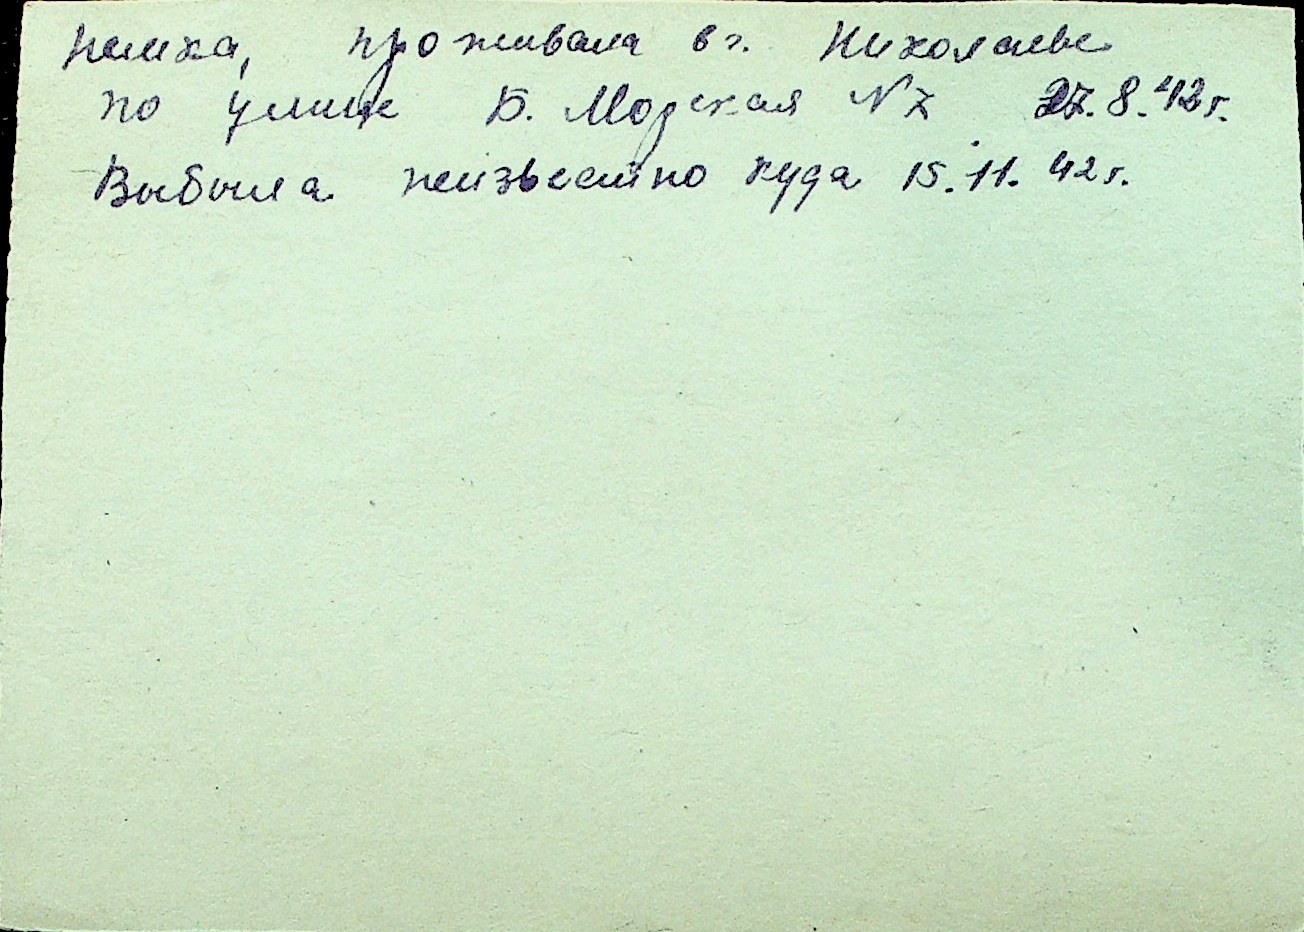 немка, проживала в г. Николаеве
по улице Б. Морская N 7 27.8.42г.
Выбыла неизвестно куда 15.11.42г.